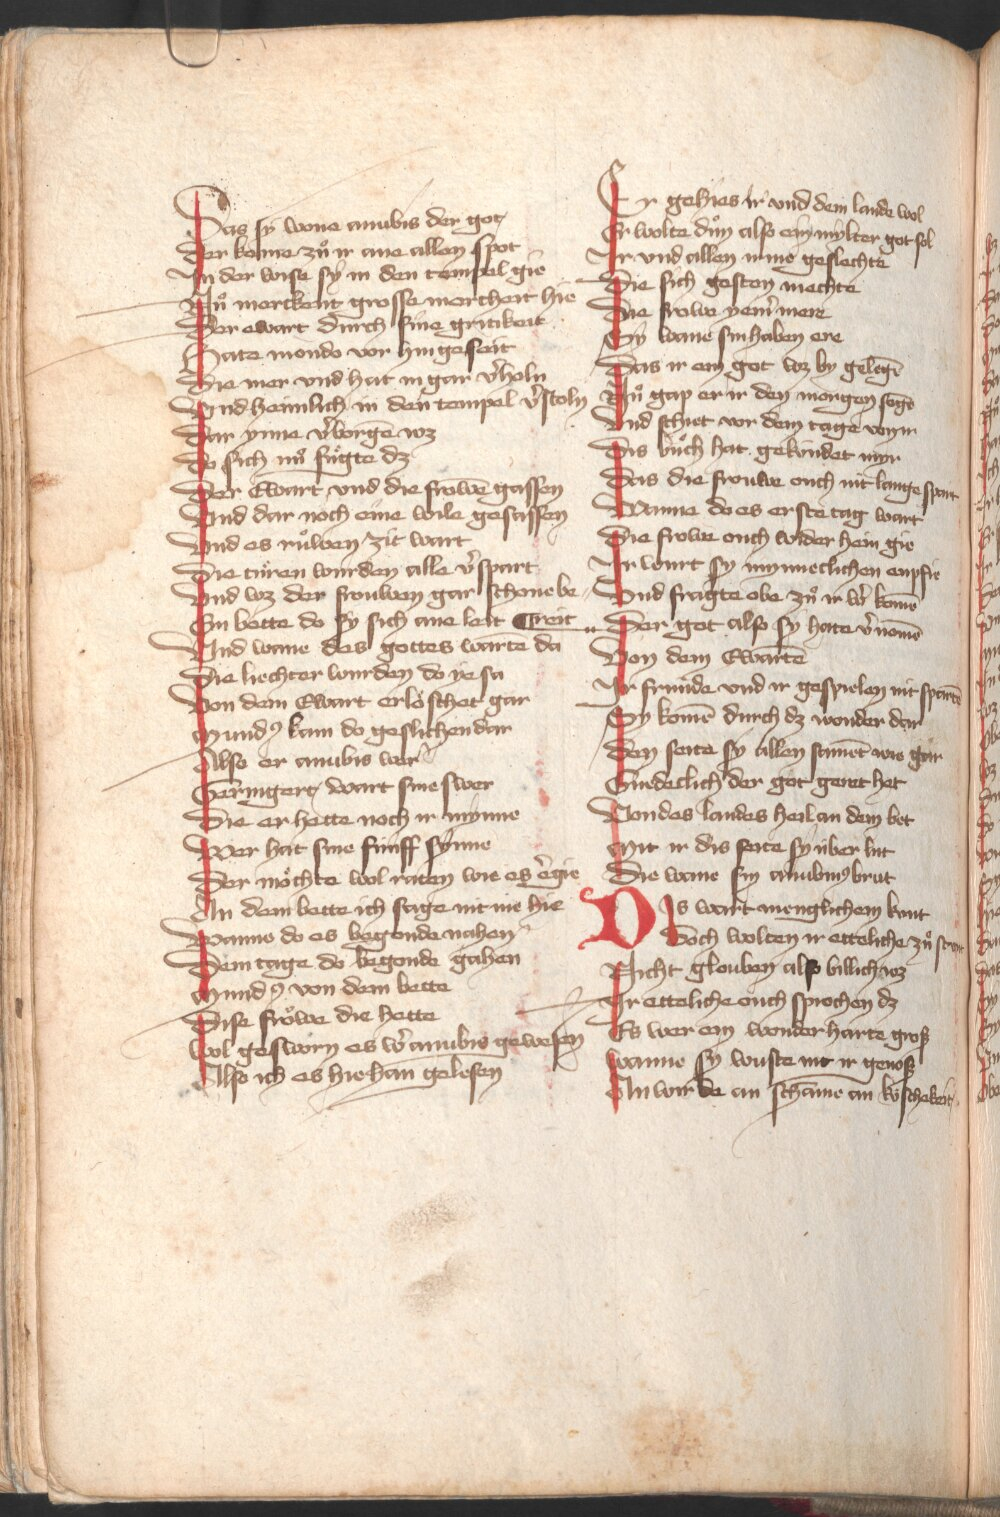 Das sy wone anubis der got
Der keme zuͦ ir ane allen spot
In der wise sy in den tempel gie
Nuͦ merckent grosse morcheit hie
Der ewart durch sine gritikeit
Hate mondo vor hin geseit
Die mer vnd hat in gar v͛holn
Vnd heimlich in den tempel v͛stoln
Dar ynne v͛borgē wz
Do sich nuͦ fuͤgte dz
Der Ewart vnd die frowē gassen
Vnd dar noch eine wile gesassen
Vnd es ruͦwen zit wart
Die tuͤren wurden alle v͛spart
Vnd wz der frouwen gar schone be
Ein bette do sy sich ane leit ¶ reit
Vnd wane des gottes warte da
Die liechter wurden do ye sa
Von dem Ewart erloͤschet gar
Mundꝰ kam do geslichen dar
Also er anubis wer
Geringert wart sine swer
Die er hette noch ir mynne
Wer hat sine fünff synne
Der moͤchte wol raten wie es ergie
An dem bette ich sage nit me hie
Wanne do es begonde nahen
Dem tage do begonde gahen
Mundꝰ von dem bette
Dise froͧwe die hette
Wol gesworn es wer anubis gewesen
Also ich es hie han gelesen
Er gehies ir vnd dem lande wol
Er wolte duͦn also ein mylter got sol
Ir vnd allen irme geslechte
Die sich gesten mechte
Die frowe yem͛ mere
Sy wane sin haben ere
Das ir ein got wz by gelegē
Nuͦ gap er ir den morgen segē
Vnd schiet vor dem tage von ir
Dis buͦch hat gekündet mir
Das die frouwe ouch nit lange spart
Wanne do es erste tag wart
Die frowe ouch wider hein gie
Ir wart sy mynneclichen enpfie
Vnd fragte obe zuͦ ir wer komē
Der got also sy hate v͛nomē
Von dem Ewarte
Ir frunde vnd ir gespielen nit spartē
Sy komē durch dz wonder dar
Den seite sy allen sament wie gar
Gundeclich der got geret het
Von des landes heil an dem bet
Mit ir dis seite sy über lut
Die wane sin anubinꝰ brut
Dis wart menglichem kunt
Doch wolten ir etteliche zuͦ
Nicht glouben also billich wz
Ir etteliche ouch sprochen dz
Es wer ein wonder harte groß
Wanne sy wuste nit ir genoß
An wirde an schame an kuschekeit